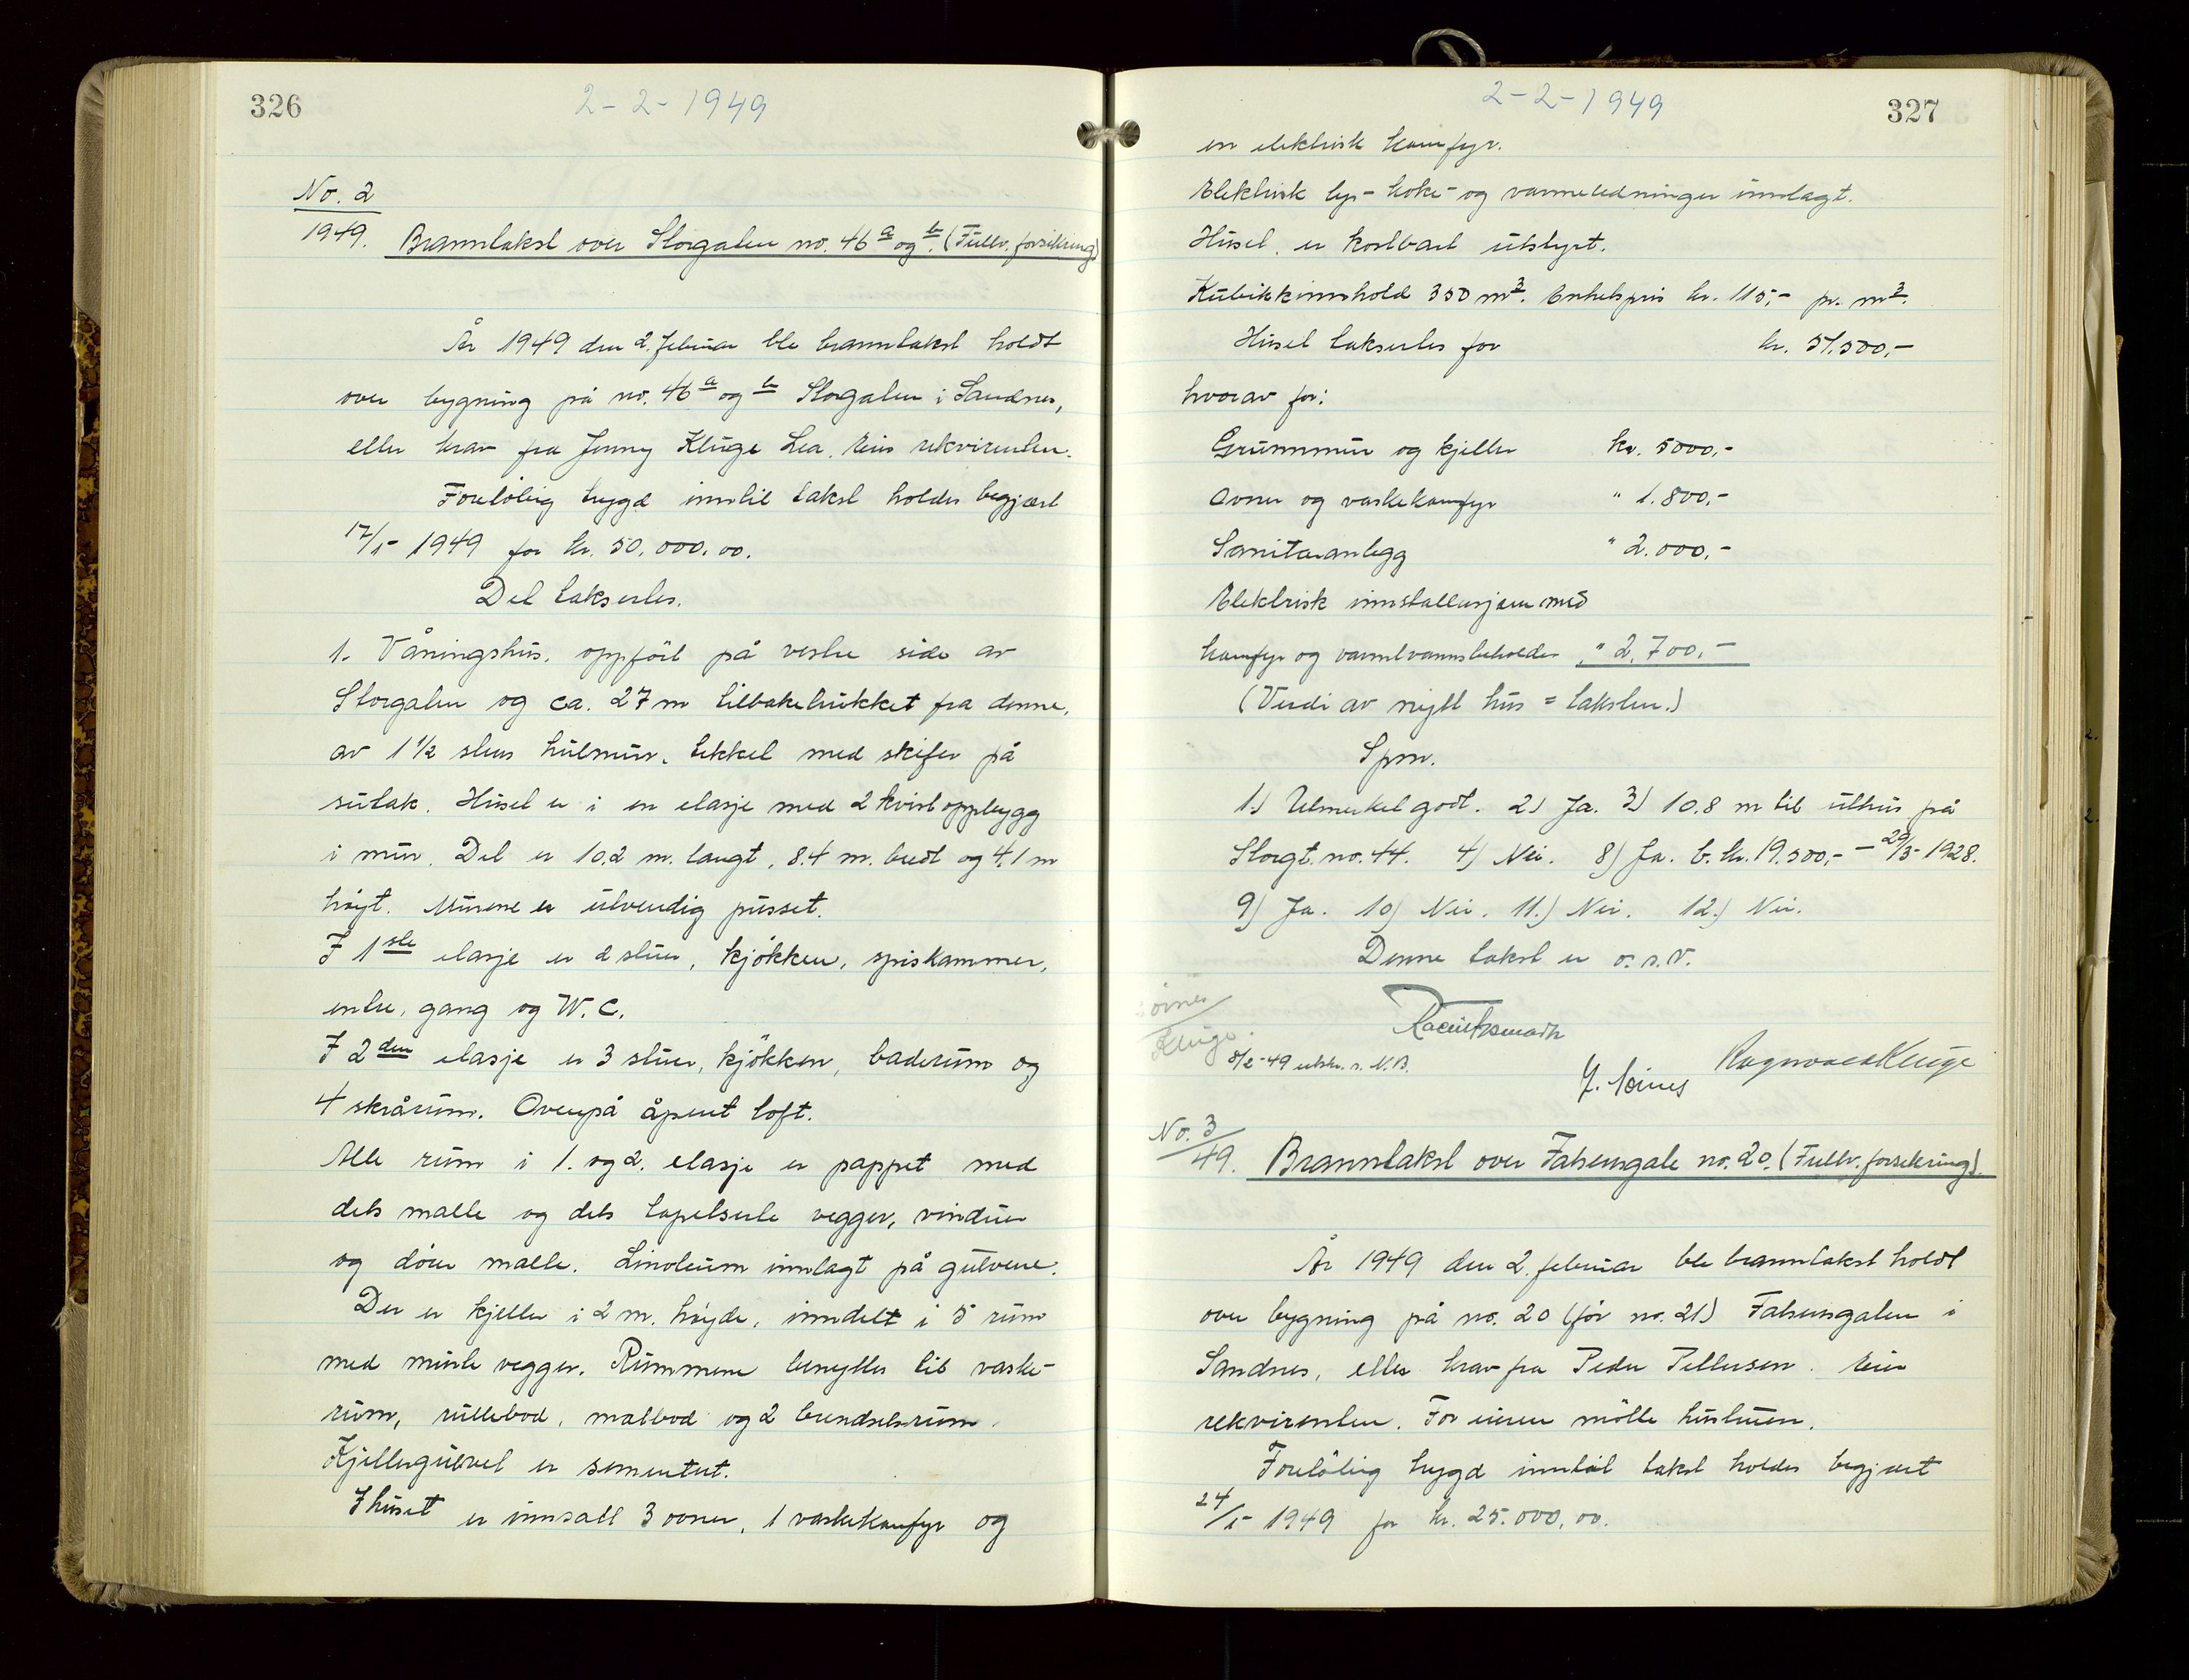 326
2-2-1949
No. 2
1949. Branntakst over Storgaten no. 46 a og b. (Fullv. forsikring)
År 1949 den 2. februar ble branntakst holdt
over bygning på no. 46 a og b Storgaten i Sandnes,
etter krav fra Jenny Kluge Lea. Eier rekvirenten.
Foreløbig trygd inntil takst holdes begjært
17/1- 1949 for kr. 50.000.00.
Det taksertes.
1. Våningshus, oppført på vestre side av
Storgaten og ca. 27 m tilbaketrukket fra denne,
av 1 1/2 stens hulmur, tekket med skifer på
sutak. Huset er i en etasje med 2 kvistoppbygg
i mur. Det er 10.2 m. langt, 8.4 m. bredt og 4.1 m
høyt. Murene er utvendig pusset.
I 1ste etasje er 2 stuer, kjøkken, spiskammer,
entre, gang og W.C.
I 2den etasje er 3 stuer, kjøkken, baderum og
4 skrårum. Ovenpå åpent loft.
Alle rum i 1. og 2. etasje er pappet med
dels malte og dels tapetserte vegger, vinduer
og dører malte. Linoleum innlagt på gulvene.
Der er kjeller i 2 m. høyde, inndelt i 5 rum
med murte vegger. Rummene benyttes til vaske-
rum, rullebod, matbod og 2 brendselsrum.
Kjellergulvet er sementert.
I huset er innsatt 3 ovner, 1 vaskekomfyr og
2-2-1949
327
en elektrisk komfyr.
Elektrisk lys- koke- og varmeledninger innlagt.
Huset er kostbart utstyrt.
Kubikkinnhold 350 m3. Enhetspris kr. 115,- pr. m3.
Huset taksertes for kr. 51.500,-
hvorav for:
Grunnmur og kjeller kr. 5000,-
Ovner og vaskekomfyr " 1.800,-
Sanitæranlegg " 2.000,-
Elektrisk innstallasjon med
komfyr og varmtvannsbeholder " 2.700,-
(Verdi av nytt hus = taksten.)
Spm.
1.) Utmerket godt. 2) Ja. 3) 10.8 m til uthus på
Storgt. no. 44. 4) Nei. 8) Ja. b. kr. 19.500,- - 29/5- 1928.
9) Ja. 10) Nei. 11.) Nei. 12.) Nei.
Denne takst er o.s.v.
Kluge
8/2-49 utskr. s. N.B.
Ragnvald Kluge
No. 3
49. Branntakst over Falsensgate no. 20. (Fullv. forsikring).
År 1949 den 2. februar ble branntakst holdt
over bygning på no. 20 (før no. 21) Falsensgaten i
Sandnes, etter krav fra Peder Pettersen. Eier
rekvirenten. For eieren møtte hustruen.
Foreløbig trygd inntil takst holdes begjært
24/1- 1949 for kr. 25.000,00.